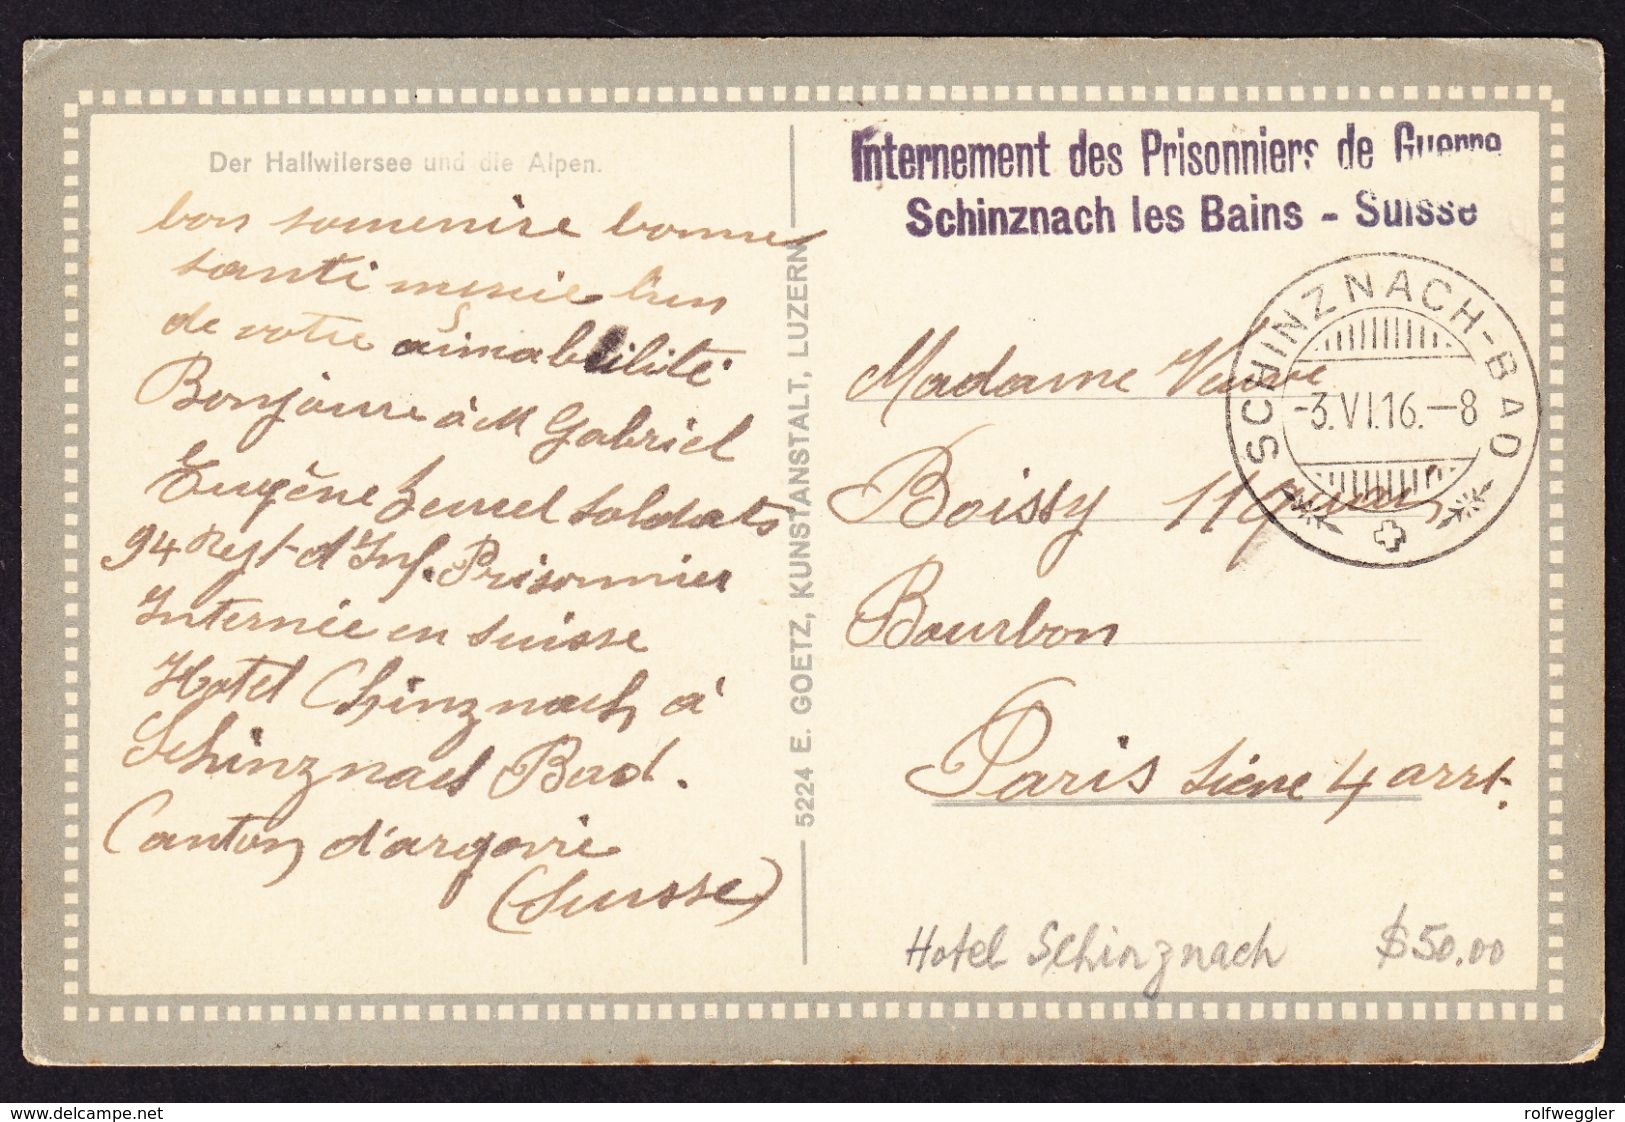 Der Hallwilersee und die Alpen.
bon souvenire bonnes
santi mercie bien
de votre aimabilité
Bonjoure à M Gabriel
Eugène soldats
94 Regt d'Inf. Prisonnier
Internée en suisse
Hotel Chinznach à
Schinznach Bad.
Canton d'argovie
(Suisse)
5224 E. GOETZ, KUNSTANSTALT, LUZERN
Internement des Prisonniers de Guerre
Schinznach les Bains - Suisse
SCHINZNACH-BAD
-3.VI.16.-8
Madame Veuve
Boissy 11 quai
Bourbon
Paris 4 arrt.
Hotel Schinznach $50.00
delcampe.net
rolfweggler